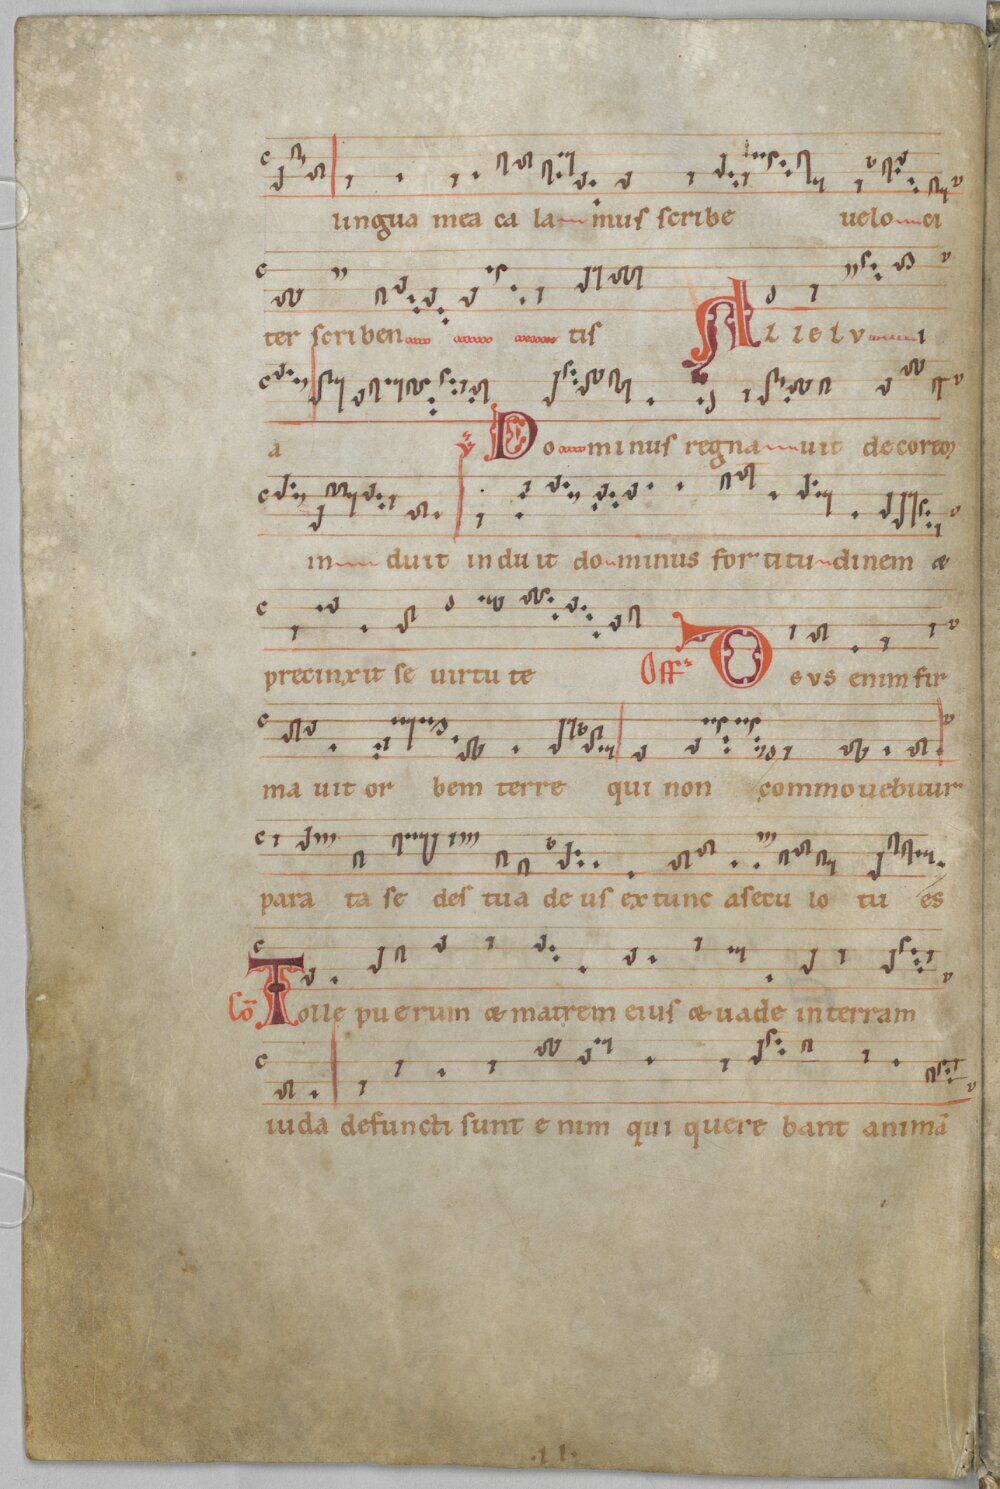 lingua mea ca la mus scribe uelo ci
ter scriben tis Allelv i
a ℣ Do minus regna uit decorem
in duit induit do minus fortitu dinem &
precinxit se uirtu te Off Deus enim fir
ma uit or bem terre qui non commouebitur
para ta se des tua de us extunc asecu lo tu es
Co Tolle puerum & matrem eius & uade interram
iuda defuncti sunt enim qui quere bant animā
·II·